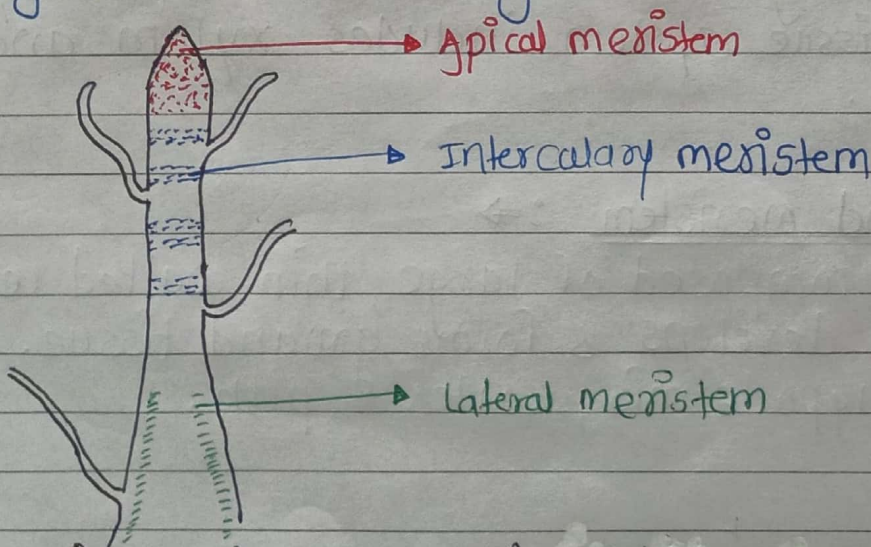 Apical meristem
Intercalary meristem
Lateral meristem